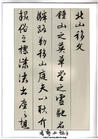 北山移文
鍾山之英草堂之靈馳煙
驛路勒移山庭夫以耿介
拔俗之標瀟洒出塵之想